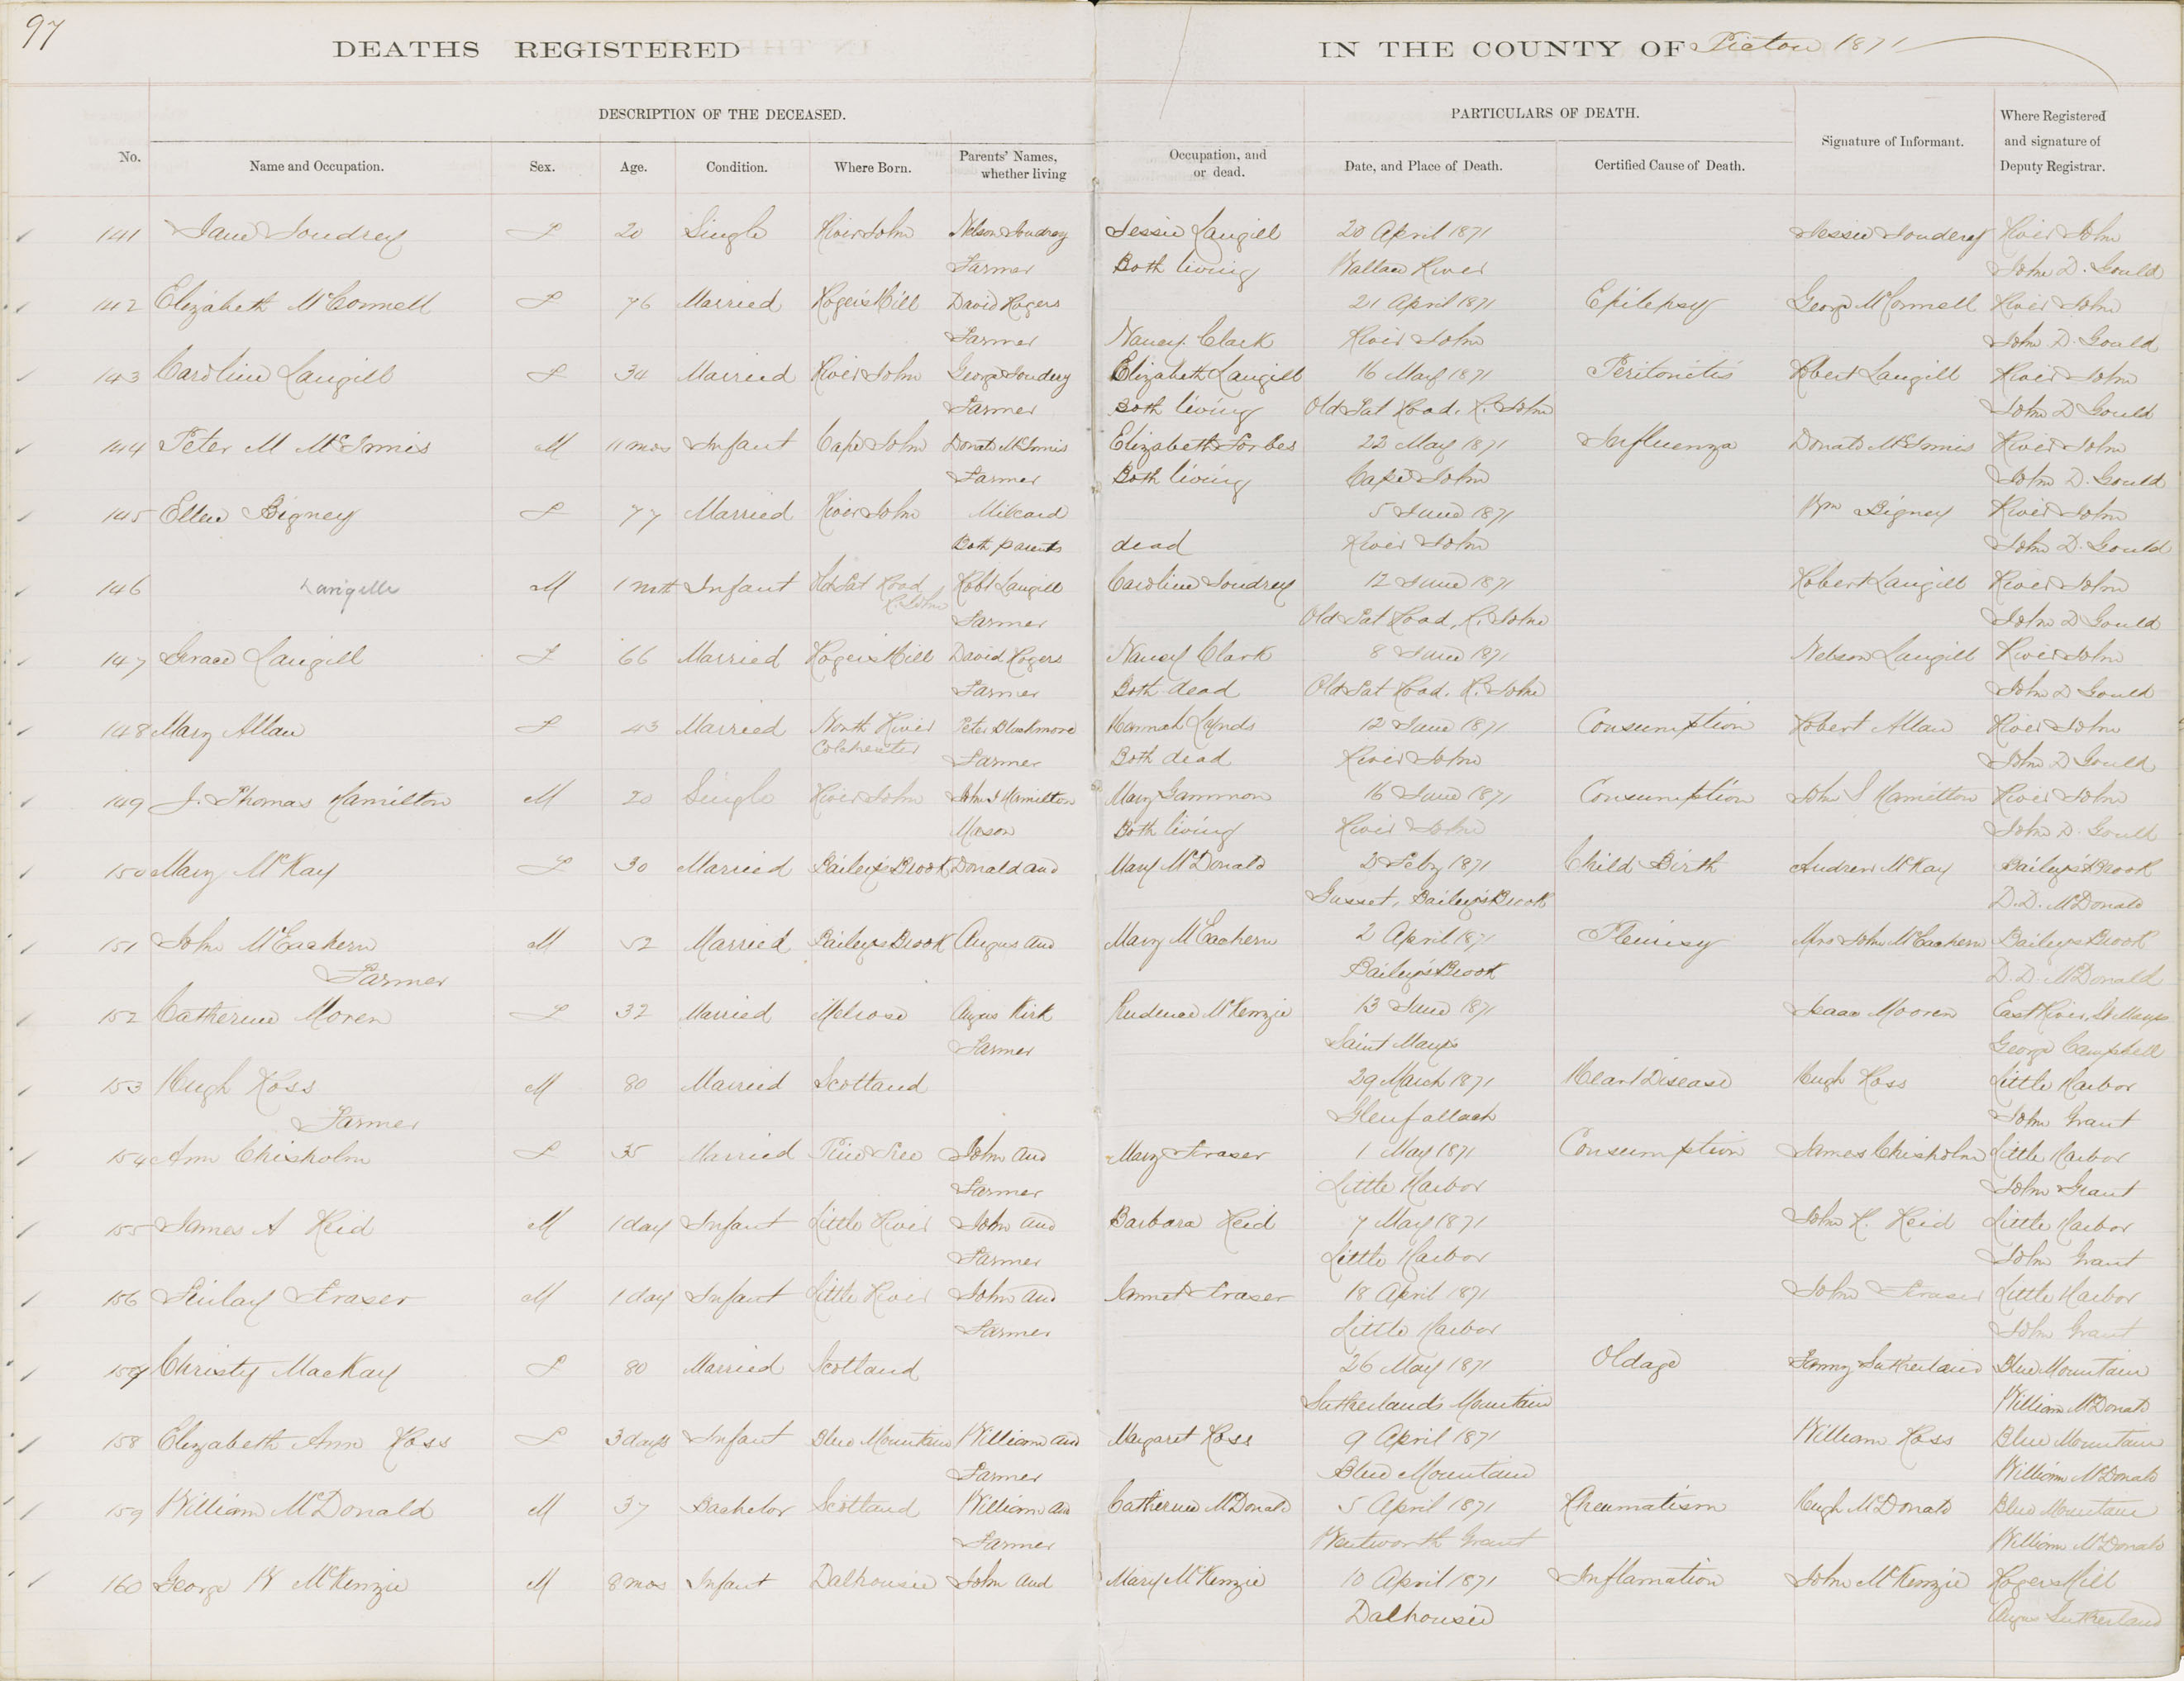 97
DEATHS REGISTERED IN THE COUNTY OF Pictou 1871
DESCRIPTION OF THE DECEASED. PARTICULARS OF DEATH.
No. Name and Occupation. Sex. Age. Condition. Where Born. Parents' Names, whether living Occupation, and or dead. Date, and Place of Death. Certified Cause of Death. Signature of Informant. Where Registered and signature of Deputy Registrar.
141 Jane Joudrey F 20 Single River John Nelson Joudrey Jessie Langill 20 April 1871 Jessie Jouderey River John
Farmer Both living Wallace River John D. Gould
142 Elizabeth McConnell F 76 Married Roger's Hill David Rogers 21 April 1871 Epilepsy George McConnell River John
Farmer Nancy Clark River John John D. Gould
143 Caroline Langill F 34 Married River John George Joudery Elizabeth Langill 16 May 1871 Peritonitis Robert Langill River John
Farmer Both living Old Tat Road. R. John John D Gould
144 Peter M McInnis M 11 mos Infant Cape John Donald McInnis Elizabeth Forbes 22 May 1871 Influenza Donald McInnis River John
Farmer Both living Cape John John D. Gould
145 Ellen Bigney F 77 Married River John Milcard 5 June 1871 Wm Bigney River John
Both parents dead River John John D. Gould
146 Langille M 1 mth Infant Old Tat Road R. John Robt Langill Caroline Joudrey 12 June 1871 Robert Langill River John
Farmer Old Tat Road, R. John John D Gould
147 Grace Langill F 66 Married Roger's Hill David Rogers Nancy Clark 8 June 1871 Nelson Langill River John
Farmer Both dead Old Tat Road. R. John John D Gould
148 Mary Allan F 43 Married North River Colchester Peter Blackmore Hannah Lynds 12 June 1871 Consumption Robert Allan River John
Farmer Both dead River John John D Gould
149 J. Thomas Hamilton M 20 Single River John John S Hamilton Mary Gammon 16 June 1871 Consumption John S Hamilton River John
Mason Both living River John John D. Gould
150 Mary McKay F 30 Married Bailey's Brook Donald and Mary McDonald 2 Feby 1871 Child Birth Andrew McKay Bailey's Brook
Gusset, Bailey's Brook D. D. McDonald
151 John McEachern M 52 Married Bailey's Brook Angus and Mary McEachern 2 April 1871 Pleurisy Mrs John McEachern Bailey's Brook
Farmer Bailey's Brook D. D. McDonald
152 Catherine Moren F 32 Married Melrose Angus Kirk Prudence McKenzie 13 June 1871 Isaac Mooren East River, St Marys
Farmer Saint Mary's George Campbell
153 Hugh Ross M 80 Married Scotland 29 March 1871 Heart Disease Hugh Ross Little Harbor
Farmer Glenfallach John Grant
154 Ann Chisholm F 35 Married Pine Tree John and Mary Fraser 1 May 1871 Consumption James Chisholm Little Harbor
Farmer Little Harbor John Grant
155 James A Reid M 1 day Infant Little River John and Barbara Reid 7 May 1871 John R. Reid Little Harbor
Farmer Little Harbor John Grant
156 Finlay Fraser M 1 day Infant Little River John and Jannet Fraser 18 April 1871 John Fraser Little Harbor
Farmer Little Harbor John Grant
157 Christy MacKay F 80 Married Scotland 26 May 1871 Old age Fanny Sutherland Blue Mountain
Sutherland's Mountain William McDonald
158 Elizabeth Ann Ross F 3 days Infant Blue Mountain William and Margaret Ross 9 April 1871 William Ross Blue Mountain
Farmer Blue Mountain William McDonald
159 William McDonald M 37 Bachelor Scotland William and Catherine McDonald 5 April 1871 Rheumatism Hugh McDonald Blue Mountain
Farmer Wentworth Grant William McDonald
160 George W McKenzie M 8 mos Infant Dalhousie John and Mary McKenzie 10 April 1871 Inflamation John McKenzie Rogers Hill
Dalhousie Angus Sutherland